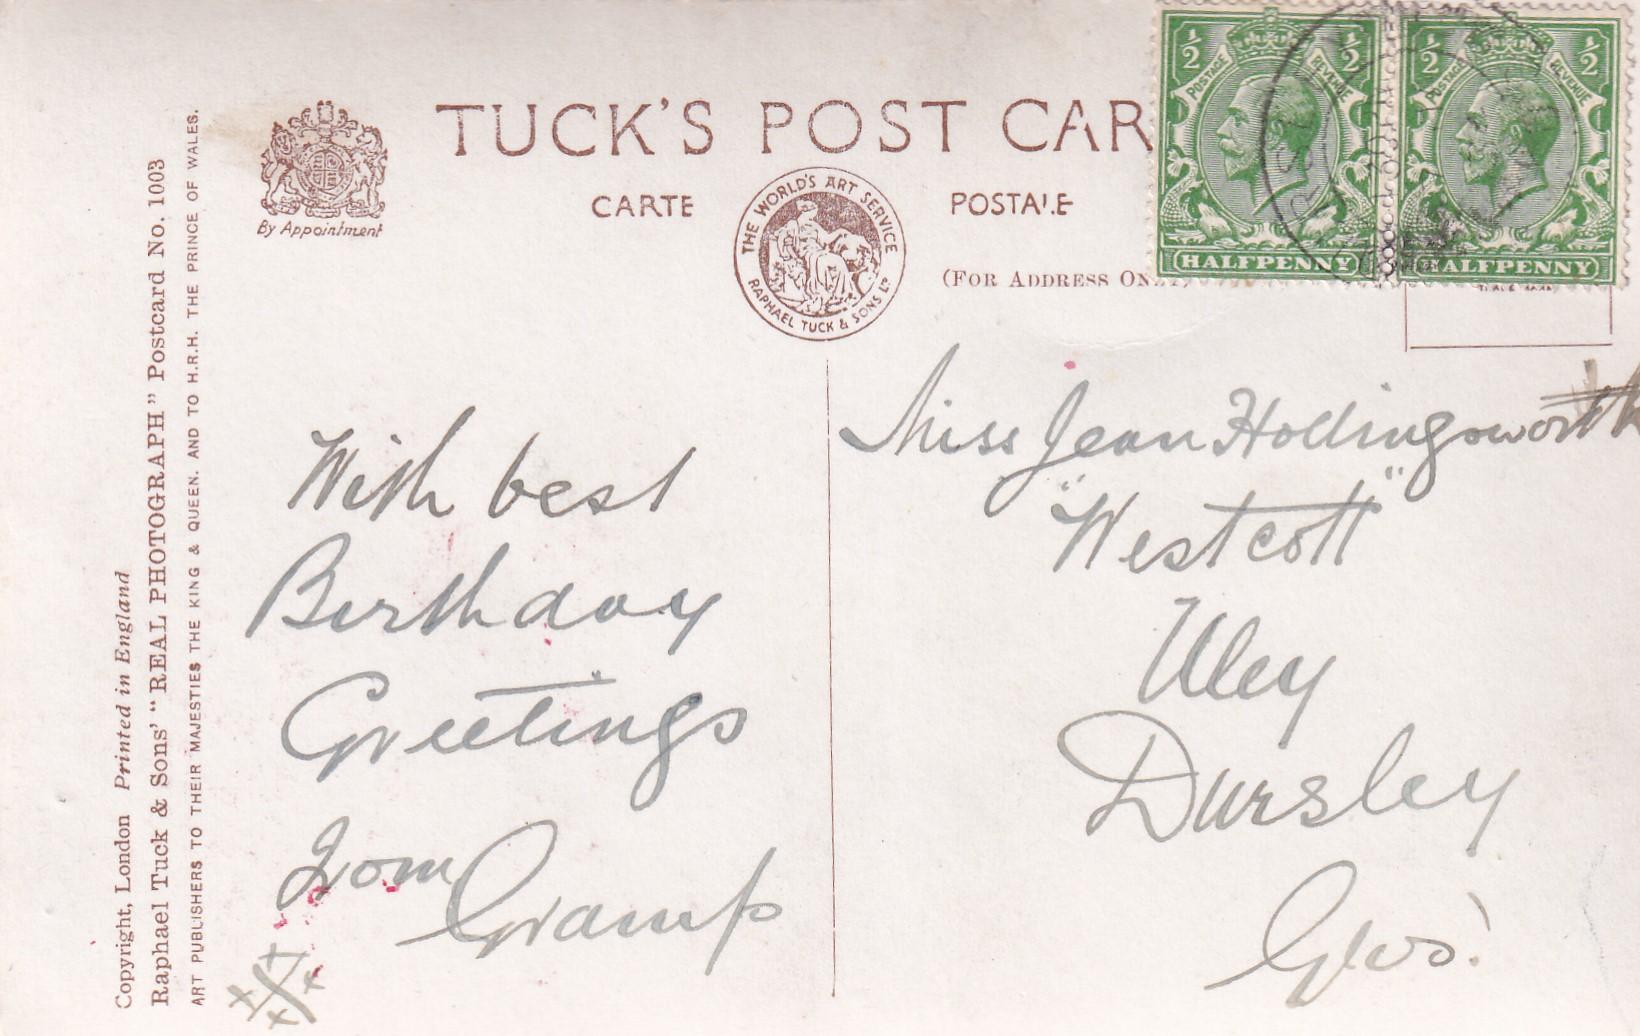 TUCK'S POST CAR
CARTE POSTALE
THE WORLD'S ART SERVICE
RAPHAEL TUCK & SONS LD
By Appointment
(FOR ADDRESS ONLY)
½ ½
POSTAGE REVENUE
HALFPENNY
½ ½
POSTAGE REVENUE
HALFPENNY
Copyright, London Printed in England
Raphael Tuck & Sons' "REAL PHOTOGRAPH" Postcard No. 1003
ART PUBLISHERS TO THEIR MAJESTIES THE KING & QUEEN. AND TO H.R.H. THE PRINCE OF WALES.
With best
Birthday
Greetings
from Gramp
Miss Jean Hollingsworth
"Westcott"
Uley
Dursley
Glos!